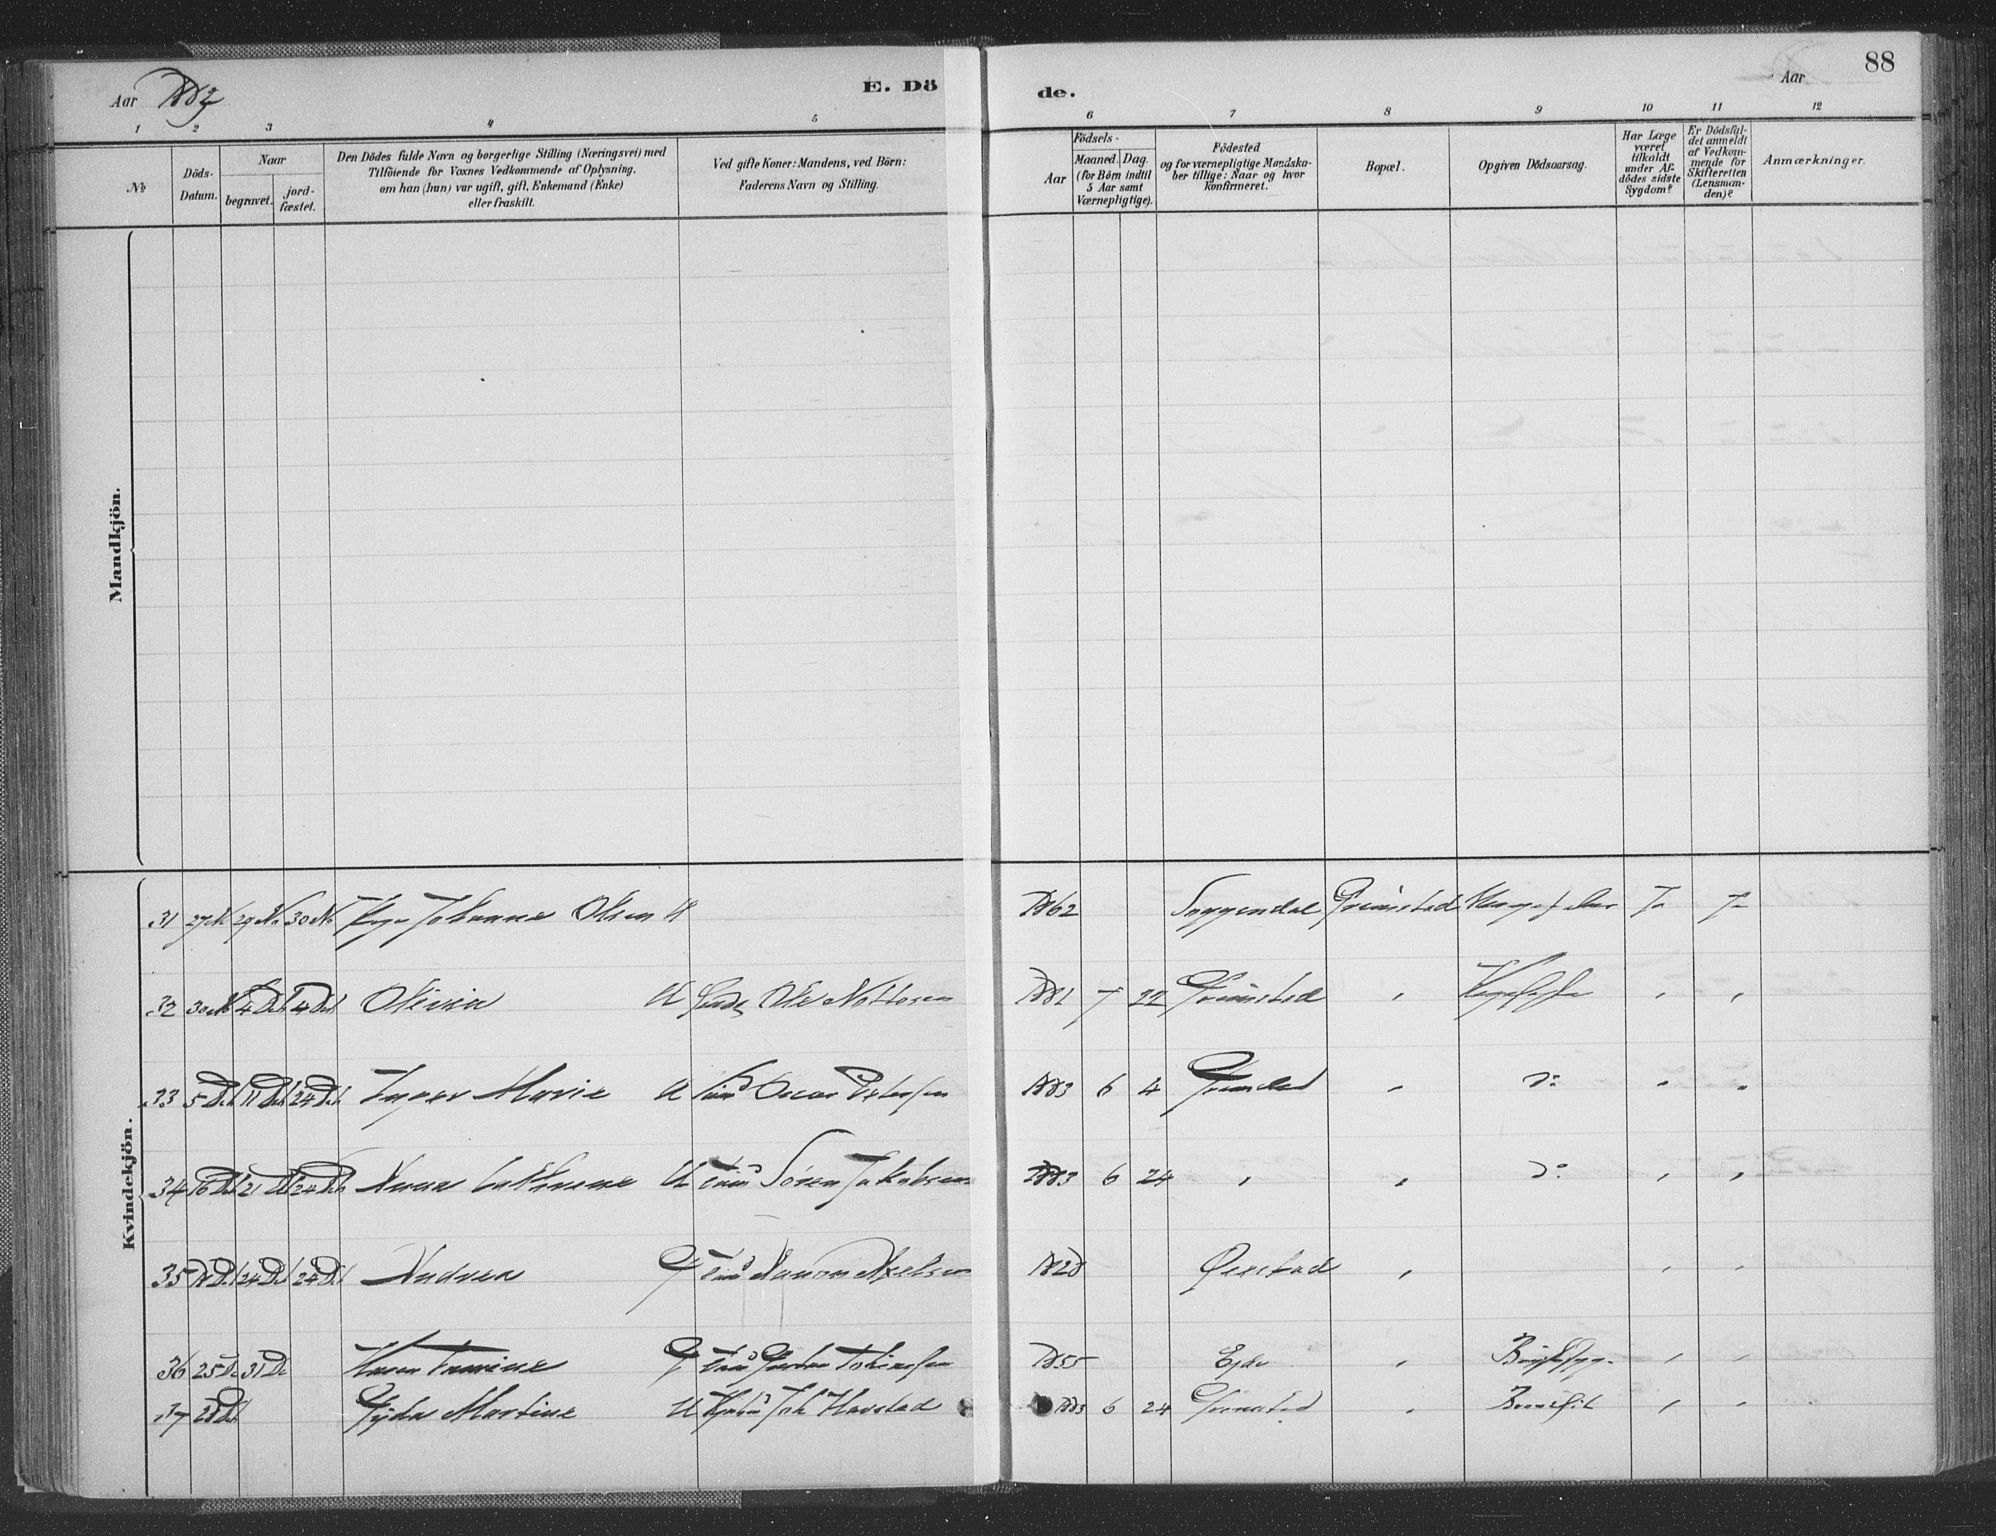 Aar 1887
E. Dö
de.
Aar
88
1 2 3 4 5 6 7 8 9 10 11 12
No
Döds-
Datum.
Naar
begravet.
jord-
fæstet.
Den Dödes fulde Navn og borgerlige Stilling (Næringsvei) med
Tilföiende for Voxnes Vedkommende af Oplysning,
om han (hun) var ugift, gift, Enkemand (Enke)
eller fraskilt.
Ved gifte Koner: Mandens, ved Børn:
Faderens Navn og Stilling.
Födsels-
Aar
Maaned. Dag.
(for Børn indtil
5 Aar samt
Værnepligtige).
Födested
og for værnepligtige Mandska-
ber tillige: Naar og hvor
konfirmeret.
Bopæl.
Opgiven Dödsaarsag.
Har Læge
været
tilkaldt
under Af-
dödes sidste
Sygdom?
Er Dödsfal-
det anmeldt
af Vedkom-
mende for
Skifteretten
(Lensman-
den)?
Anmærkninger.
Mandkjön.
Kvindekjön.
31 27 N 29 No 30 No Johanne Olsen U 1862 Soggendal Grimstad Ja Ja
32 30 No 4 Dec 4 Dec Olivia U Ole Nottosen 1881 7 22 Grimstad " " "
33 5 Dec 11 Dec 24 Dec Inger Marie U Oscar Petersen 1883 6 4 Grimstad " Do " "
34 16 Dec 21 Dec 24 Dec Anna Cathrine U Sören Jakobsen 1883 6 24 " " Do " "
35 18 Dec 24 Dec 24 Dec Andrea G Aanon Axelsen 1828 Øiestad " " "
36 25 De 31 De Karen G 1855 Eide " " "
37 28 Dec Gyda Martine U Joh Havstad 1883 6 24 Grimstad " " "